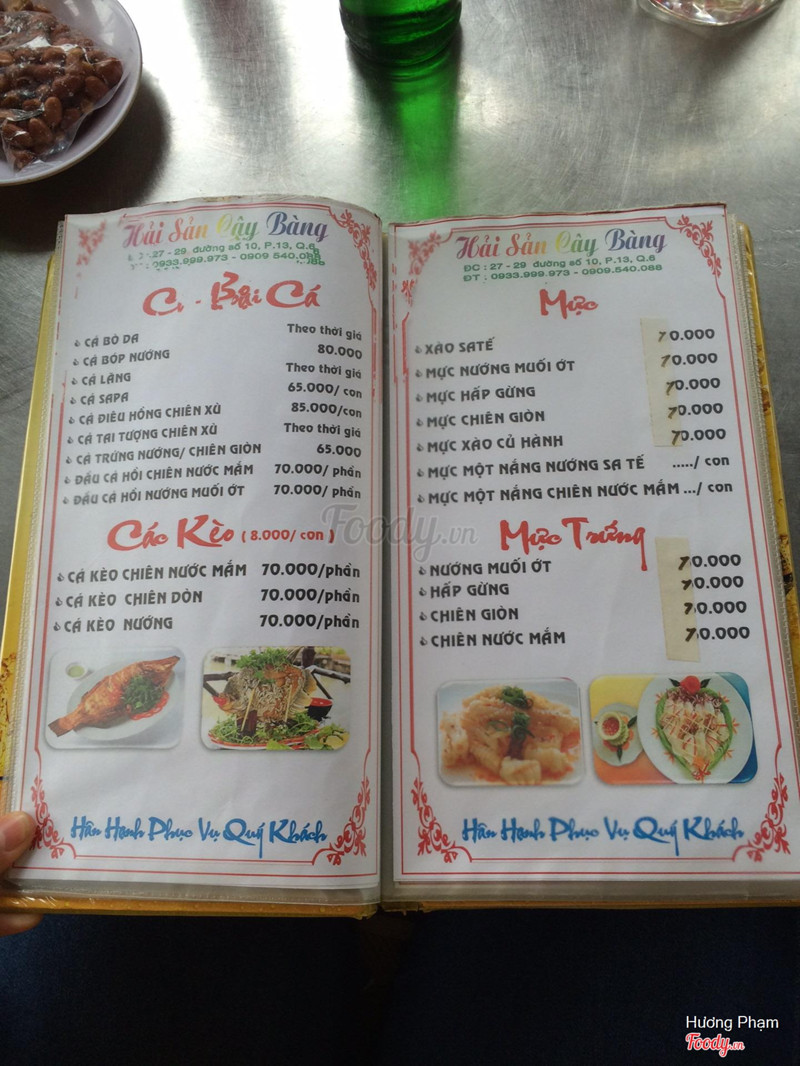 Hải Sản Cây Bàng
27 - 29 đường số 10, P.13, Q.6
0933.999.973 - 0909 540.088
Cá
CÁ BÒ DA Theo thời giá
CÁ BÓP NƯỚNG 80.000
CÁ LĂNG Theo thời giá
CÁ SAPA 65.000/ con
CÁ ĐIÊU HỒNG CHIÊN XÙ 85.000/con
CÁ TAI TƯỢNG CHIÊN XÙ Theo thời giá
CÁ TRỨNG NƯỚNG/ CHIÊN GIÒN 65.000
ĐẦU CÁ HỒI CHIÊN NƯỚC MẮM 70.000/ phần
ĐẦU CÁ HỒI NƯỚNG MUỐI ỚT 70.000/ phần
Các Kèo ( 8.000/ con )
CÁ KÈO CHIÊN NƯỚC MẮM 70.000/phần
CÁ KÈO CHIÊN DÒN 70.000/phần
CÁ KÈO NƯỚNG 70.000/phần
Hân Hạnh Phục Vụ Quý Khách
Hải Sản Cây Bàng
ĐC : 27 - 29 đường số 10, P.13, Q.6
ĐT : 0933.999.973 - 0909.540.088
Mực
XÀO SATẾ 70.000
MỰC NƯỚNG MUỐI ỚT 70.000
MỰC HẤP GỪNG 70.000
MỰC CHIÊN GIÒN 70.000
MỰC XÀO CỦ HÀNH 70.000
MỰC MỘT NẮNG NƯỚNG SA TẾ ...../ con
MỰC MỘT NẮNG CHIÊN NƯỚC MẮM .../ con
Mực Trứng
NƯỚNG MUỐI ỚT 70.000
HẤP GỪNG 70.000
CHIÊN GIÒN 70.000
CHIÊN NƯỚC MẮM 70.000
Hân Hạnh Phục Vụ Quý Khách
Foody.vn
Hương Phạm
Foody.vn